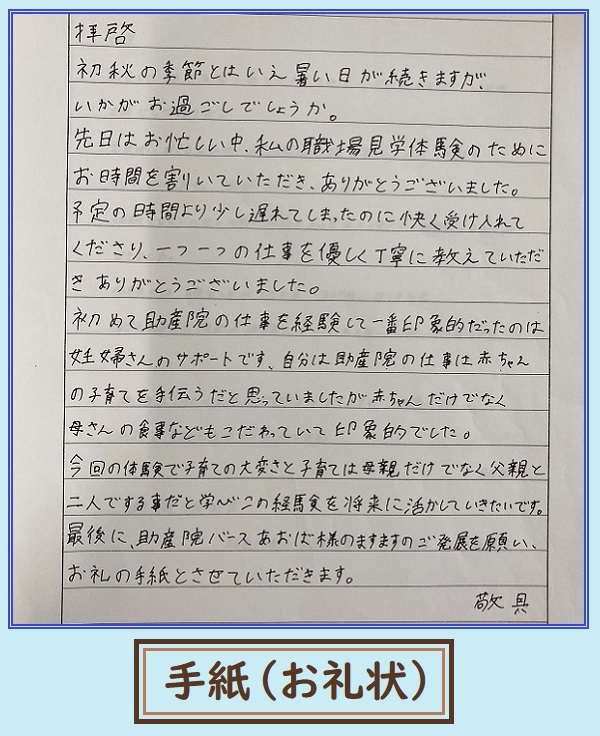 拝啓
初秋の季節とはいえ暑い日が続きますが、
いかがお過ごしでしょうか。
先日はお忙しい中、私の職場見学体験のために
お時間を割いていただき、ありがとうございました。
予定の時間より少し遅れてしまったのに快く受け入れて
くださり、一つ一つの仕事を優しく丁寧に教えていただ
きありがとうございました。
初めて助産院の仕事を経験して一番印象的だったのは
妊婦さんのサポートです、自分は助産院の仕事は赤ちゃん
の子育てを手伝うだと思っていましたが赤ちゃんだけでなく
母さんの食事などもこだわっていて印象的でした。
今回の体験で子育ての大変さと子育ては母親だけでなく父親と
二人でする事だと学べこの経験を将来に活かしていきたいです。
最後に、助産院バースあおば様のますますのご発展を願い、
お礼の手紙とさせていただきます。
敬具
手紙（お礼状）